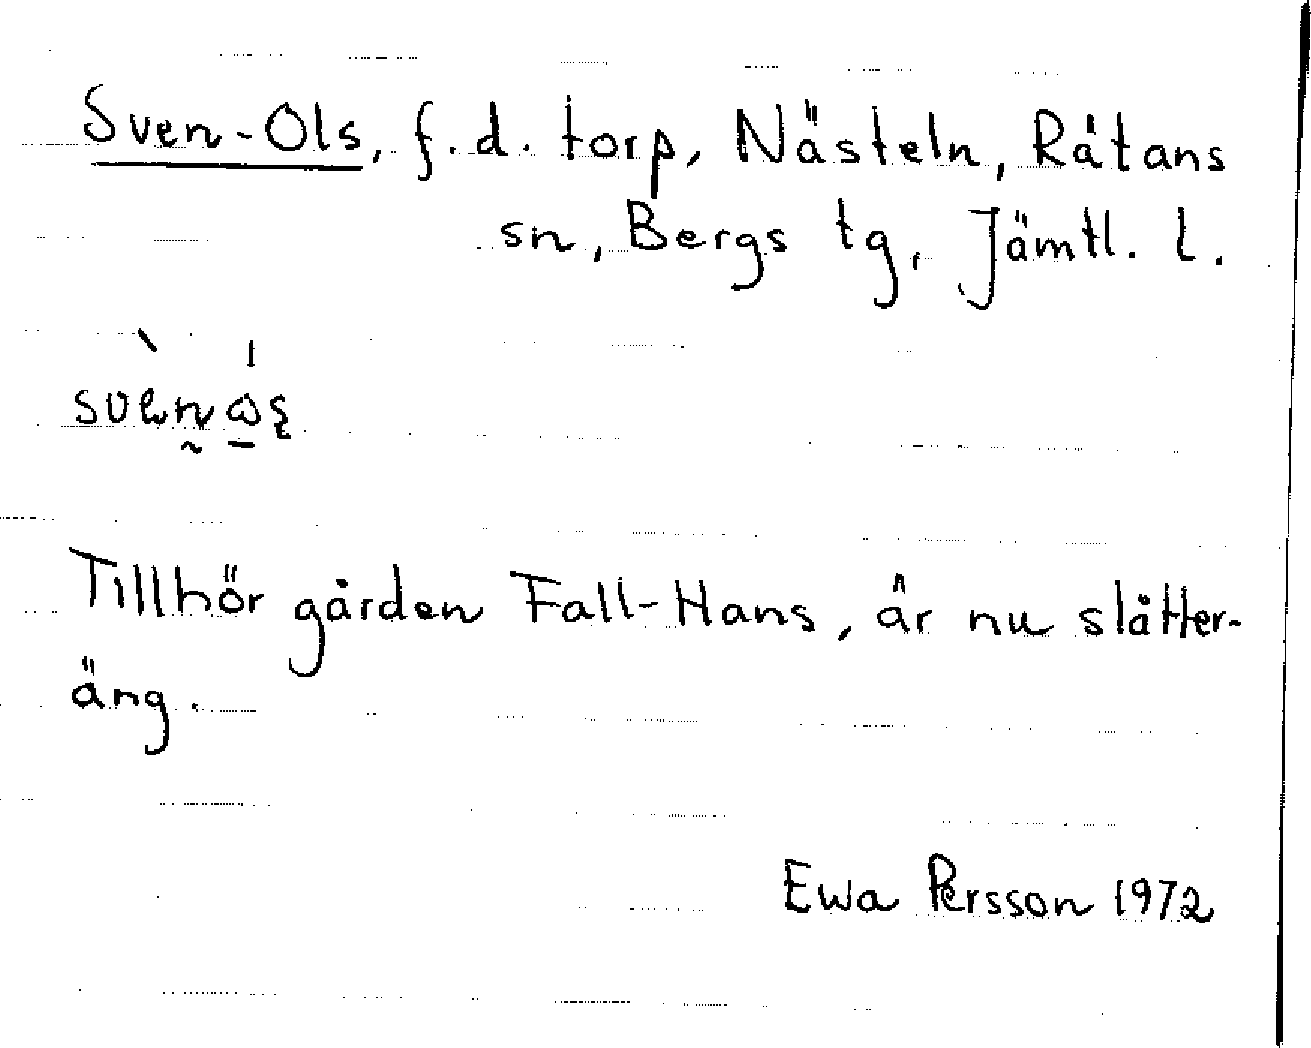 Sven-Ols, f.d. torp, Nästeln, Råtans
sn, Bergs tg, Jämtl. l.
Tillhör gården Fall-Hans, är nu slåtter-
äng.
Ewa Persson 1972